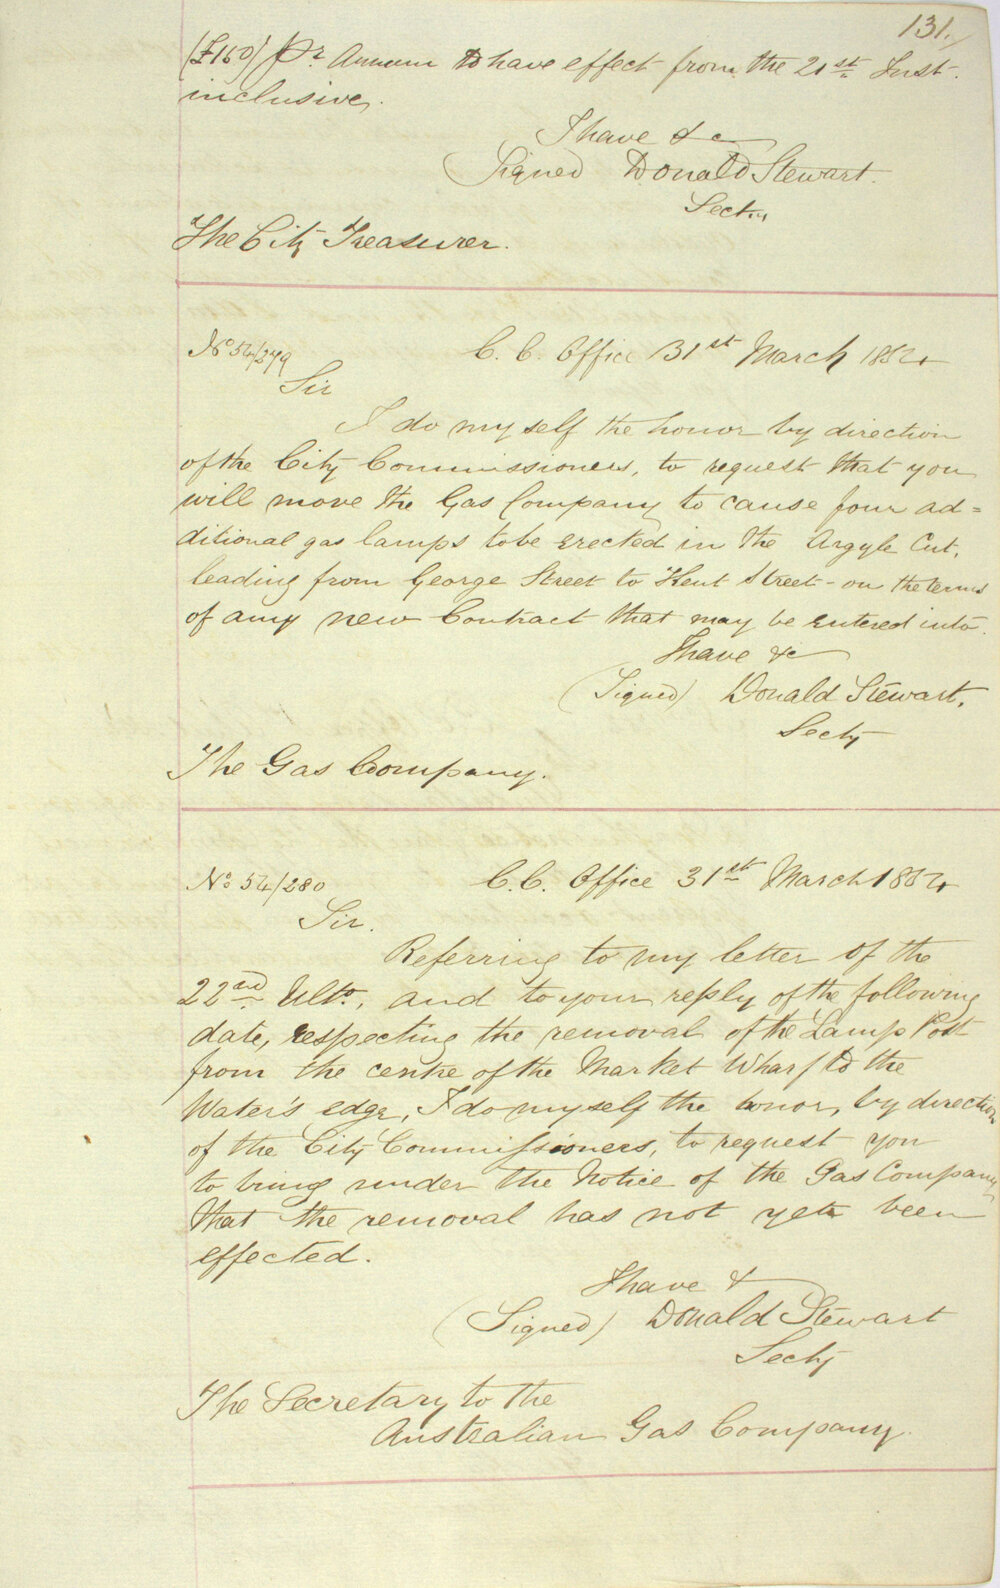 131.
(£160) pr Annum to have effect from the 21st Inst.
inclusive.
I have &c
(Signed Donald Stewart.
Secty
The City Treasurer.
No 54/279
C. C. Office 31st March 1854
Sir
I do myself the honor by direction
of the City Commissioners, to request that you
will move the Gas Company to cause four ad=
ditional gas lamps to be erected in the Argyle Cut,
leading from George Street to Kent Street - on the terms
of any new Contract that may be entered into.
I have &c
(Signed) Donald Stewart,
Secty
The Gas Company.
No 54/280
C. C. Office 31st March 1854
Sir.
Referring to my letter of the
22nd Ulto, and to your reply of the following
date, respecting the removal of the Lamp Post
from the centre of the Market Wharf to the
Water's edge, I do myself the honor, by direction
of the City Commissioners, to request you
to bring under the Notice of the Gas Company
that the removal has not yet been
effected.
I have &
(Signed) Donald Stewart
Secty
The Secretary to the
Australian Gas Company.